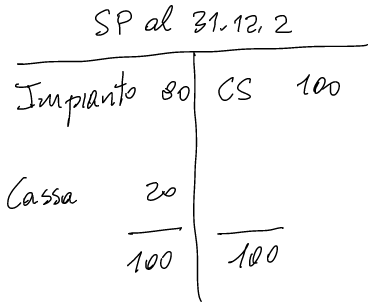 SP al 31.12.2
Impianto 80 CS 100
Cassa 20
100 100